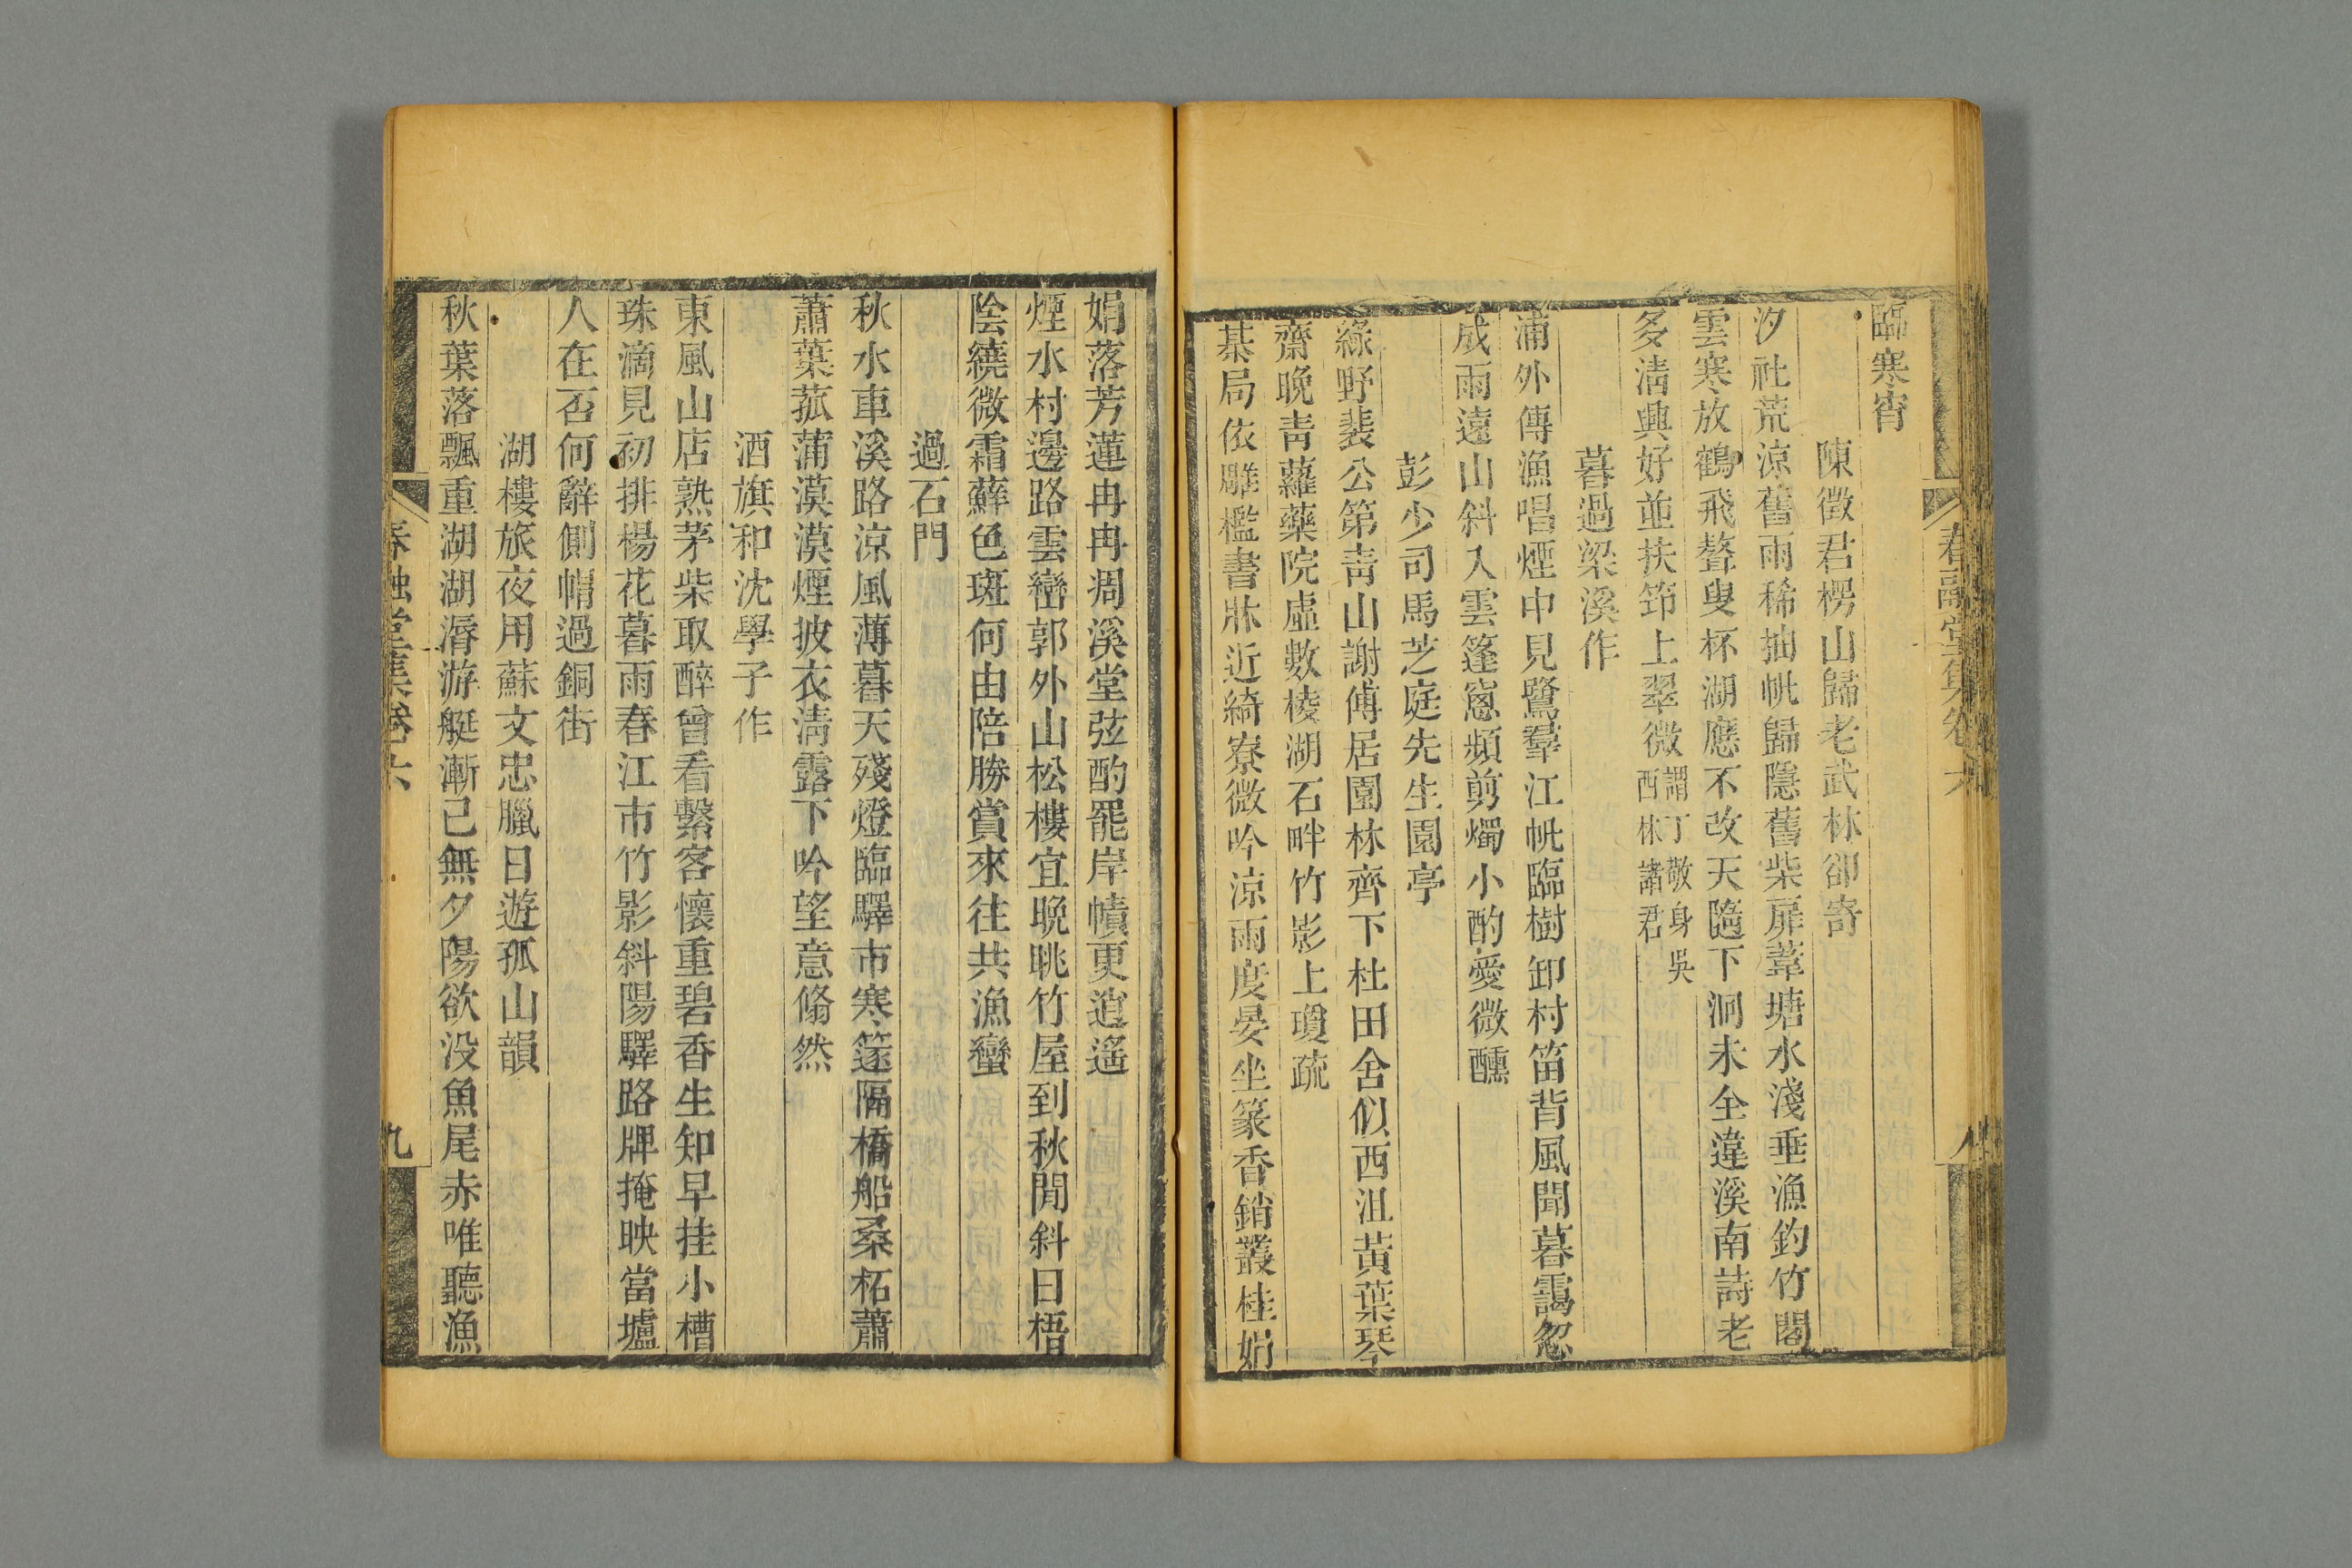 臨寒宵
陳徵君楞山歸老武林卻寄
汐社荒涼舊雨稀抽帆歸隱舊柴扉葦塘水淺垂漁釣竹閣
雲寒放鶴飛聱叟杯湖應不改天隨下洞未全違溪南詩老
多淸興好並扶筇上翠微謂丁敬身吳西林諸君
暮過梁溪作
浦外傳漁唱煙中見鷺羣江帆臨樹卸村笛背風聞暮靄忽
成雨遠山斜入雲篷窻頻剪燭小酌愛微醺
彭少司馬芝庭先生園亭
綠野裴公第靑山謝傅居園林齊下杜田舍似西沮黃葉琴
齋晚靑蘿藥院虛數棱湖石畔竹影上瓊疏
棊局依雕檻書牀近綺寮微吟涼雨度晏坐篆香銷叢桂娟
春融堂集卷六
八
娟落芳蓮冉冉凋溪堂弦酌罷岸幘更逍遙
煙水村邊路雲巒郭外山松樓宜晚眺竹屋到秋閒斜日梧
陰繞微霜蘚色斑何由陪勝賞來往共漁蠻
過石門
秋水車溪路涼風薄暮天殘燈臨驛市寒篷隔橋船桑柘蕭
蕭葉菰蒲漠漠煙披衣淸露下吟望意翛然
酒旗和沈學子作
東風山店熟茅柴取醉曾看繫客懷重碧香生知早挂小槽
珠滴見初排楊花暮雨春江市竹影斜陽驛路牌掩映當壚
人在否何辭側帽過銅街
湖樓旅夜用蘇文忠臘日遊孤山韻
秋葉落飄重湖湖漘游艇漸已無夕陽欲没魚尾赤唯聽漁
春融堂集卷六
九